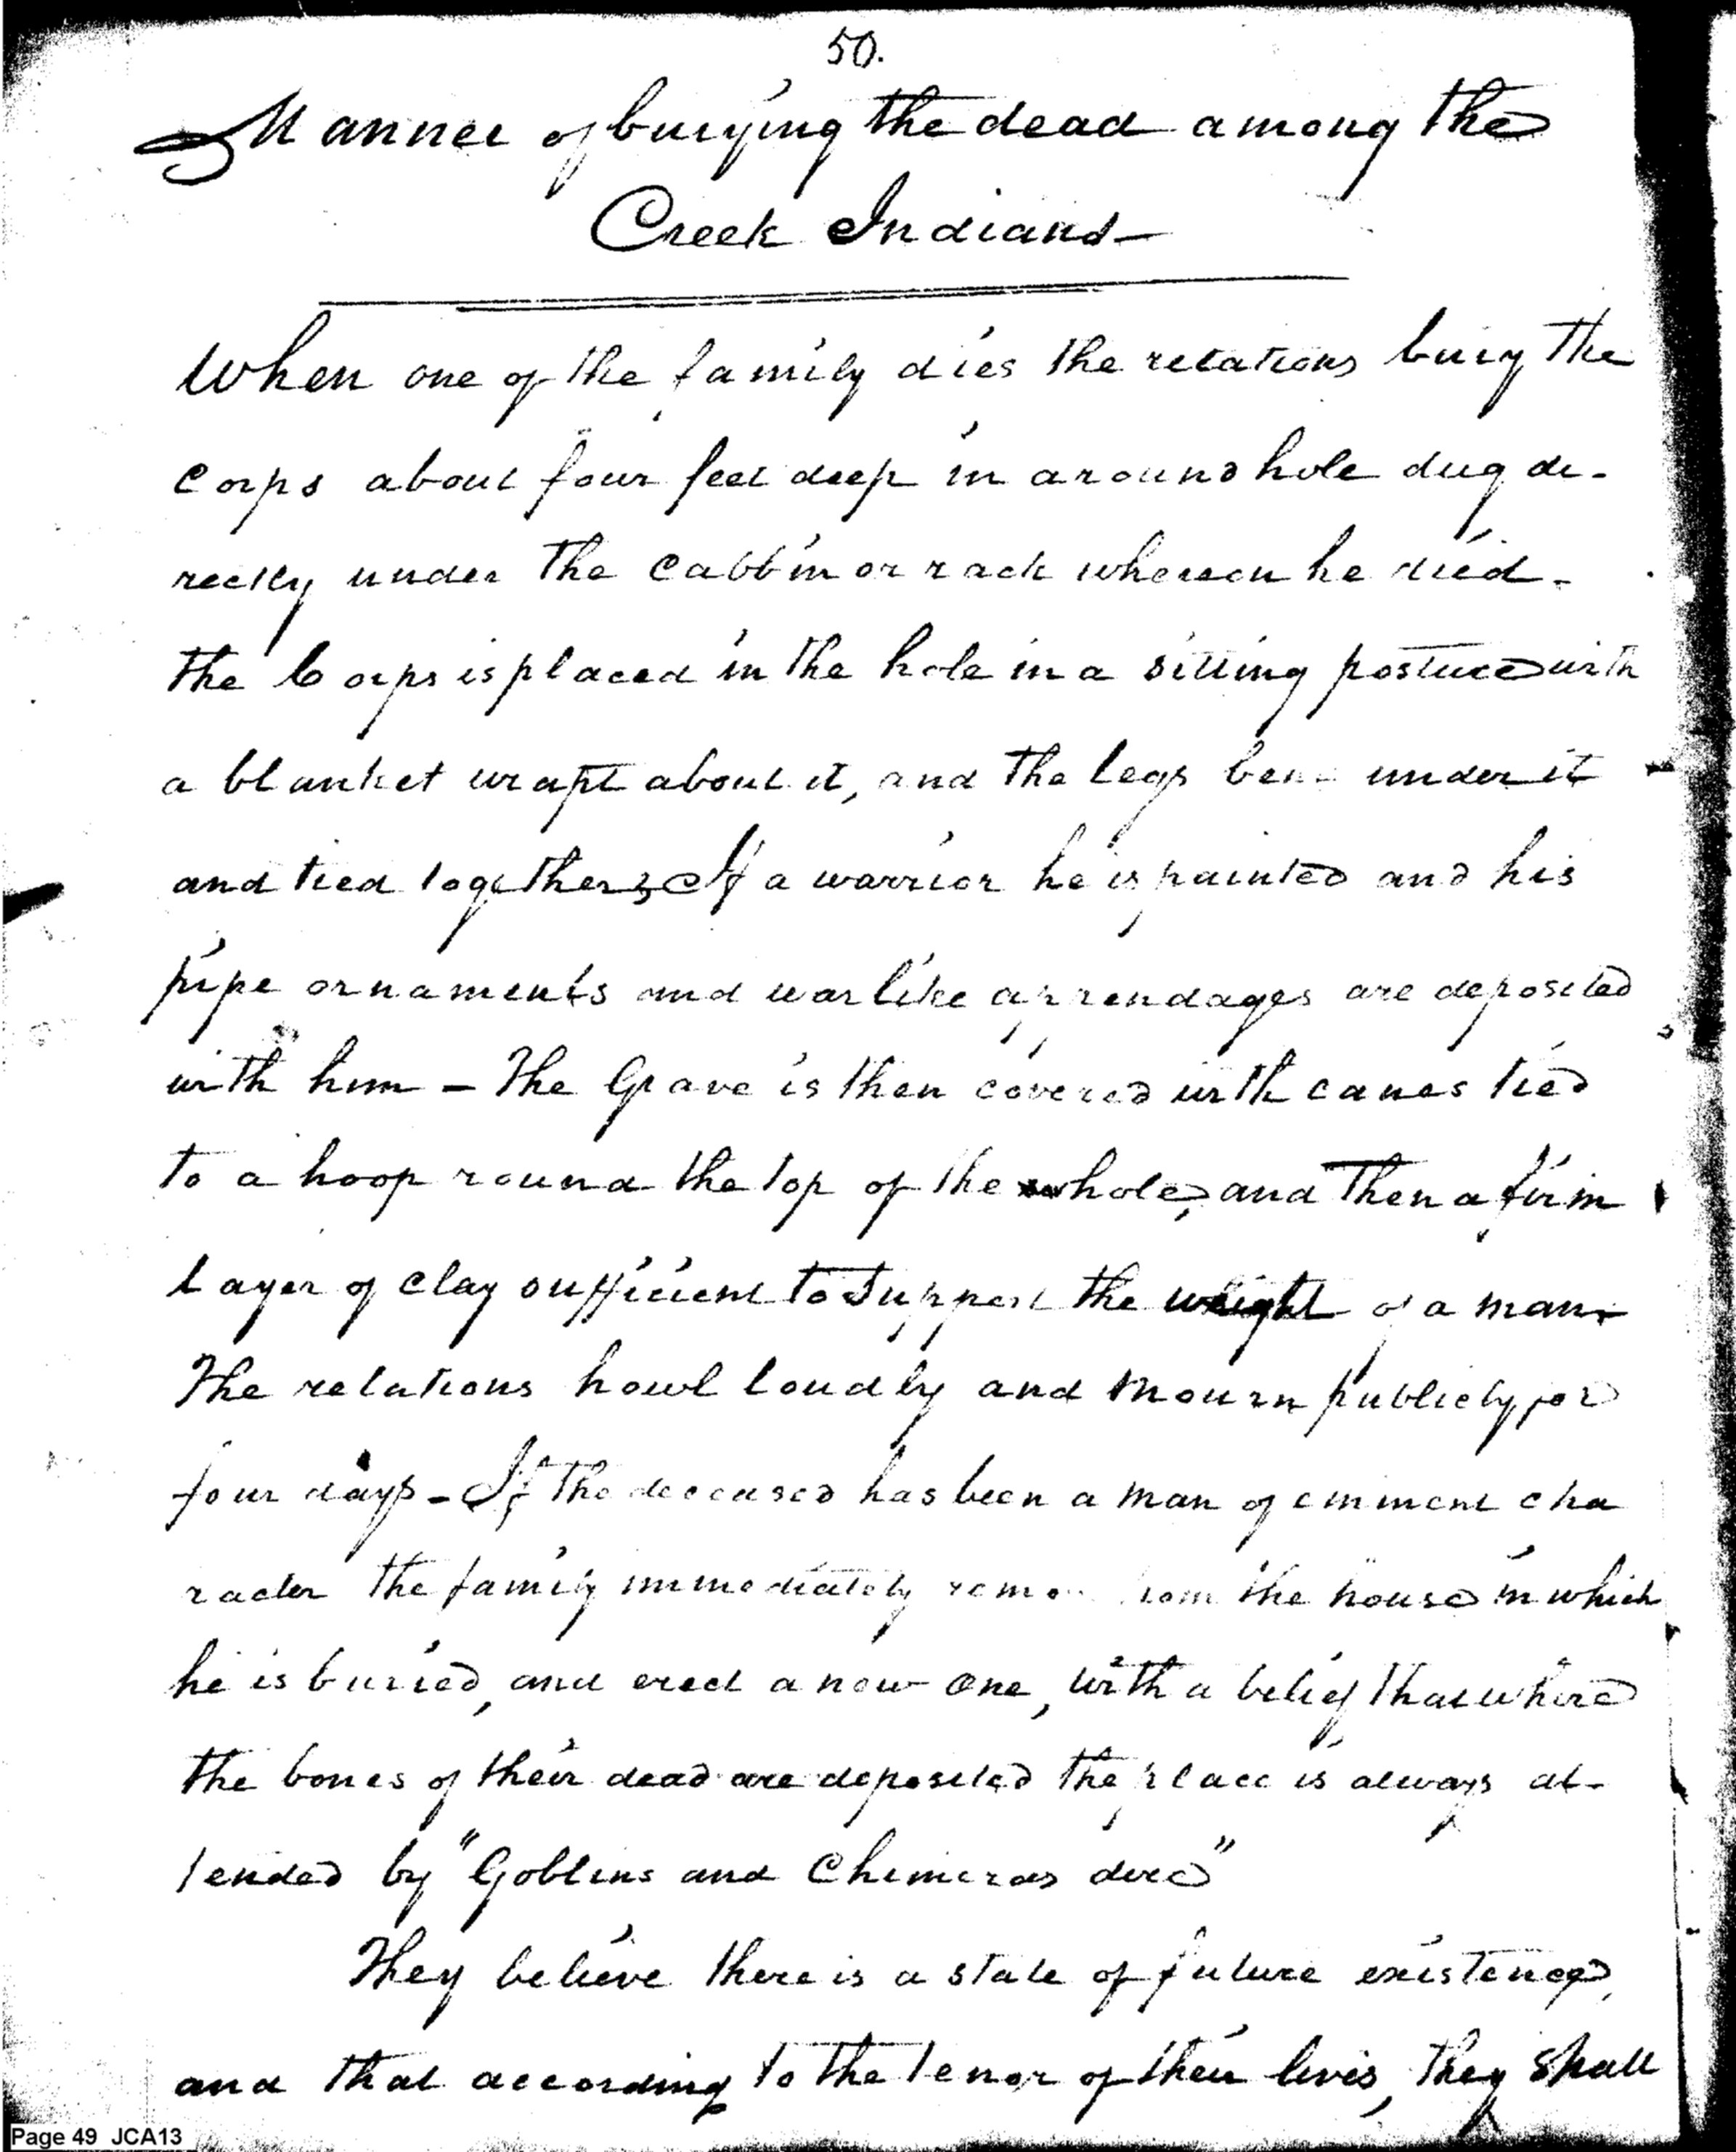 50.
Manner of burying the dead among the
Creek Indians—
When one of the family dies the relations bury the
corps about four feet deep in a round hole dug di-
rectly under the cabbin or rack whereon he died -
the Corps is placed in the hole in a sitting posture with
a blanket wrapt about it, and the legs bent under it
and tied together; If a warrior he is painted and his
pipe ornaments and warlike appendages are deposited
with him - The Grave is then covered with canes tied
to a hoop round the top of the hole, and then a firm
layer of clay sufficient to support the weight of a man.
The relations howl loudly and mourn publicly for
four days - If the deceased has been a man of eminent cha
racter the family immediately from the house in which
he is buried, and erect a new one, with a belief that where
the bones of their dead are deposited the place is always at-
tended by "Goblins and Chimeras dire"
They believe there is a state of future existence,
and that according to the tenor of their lives, they shall
Page 49 JCA13